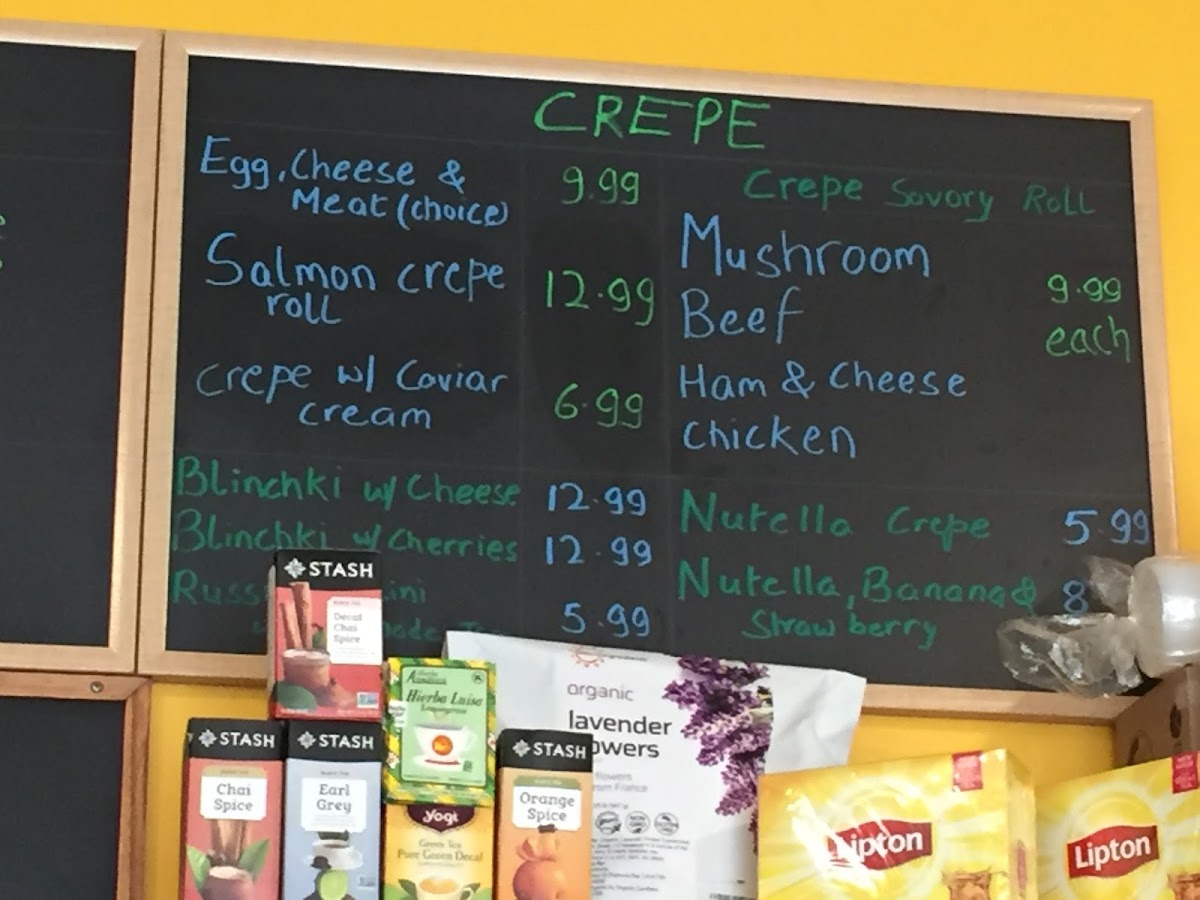 CREPE
Egg, Cheese & 9.99
Meat (choice)
Salmon crepe 12.99
roll
crepe w/ Caviar 6.99
cream
Blinchki w/ Cheese 12.99
Blinchki w/ Cherries 12.99
5.99
Crepe Savory Roll
Mushroom
Beef
Ham & Cheese
chicken
9.99
each
Nutella Crepe 5.99
Nutella, Banana & 8
Strawberry
STASH
Decaf
Chai
Spice
STASH
Chai
Spice
STASH
Earl
Grey
Hierba Luisa
Lemongrass
yogi
Green Tea
Pure Green Decaf
STASH
Orange
Spice
organic
lavender
flowers
from France
Lipton
Lipton